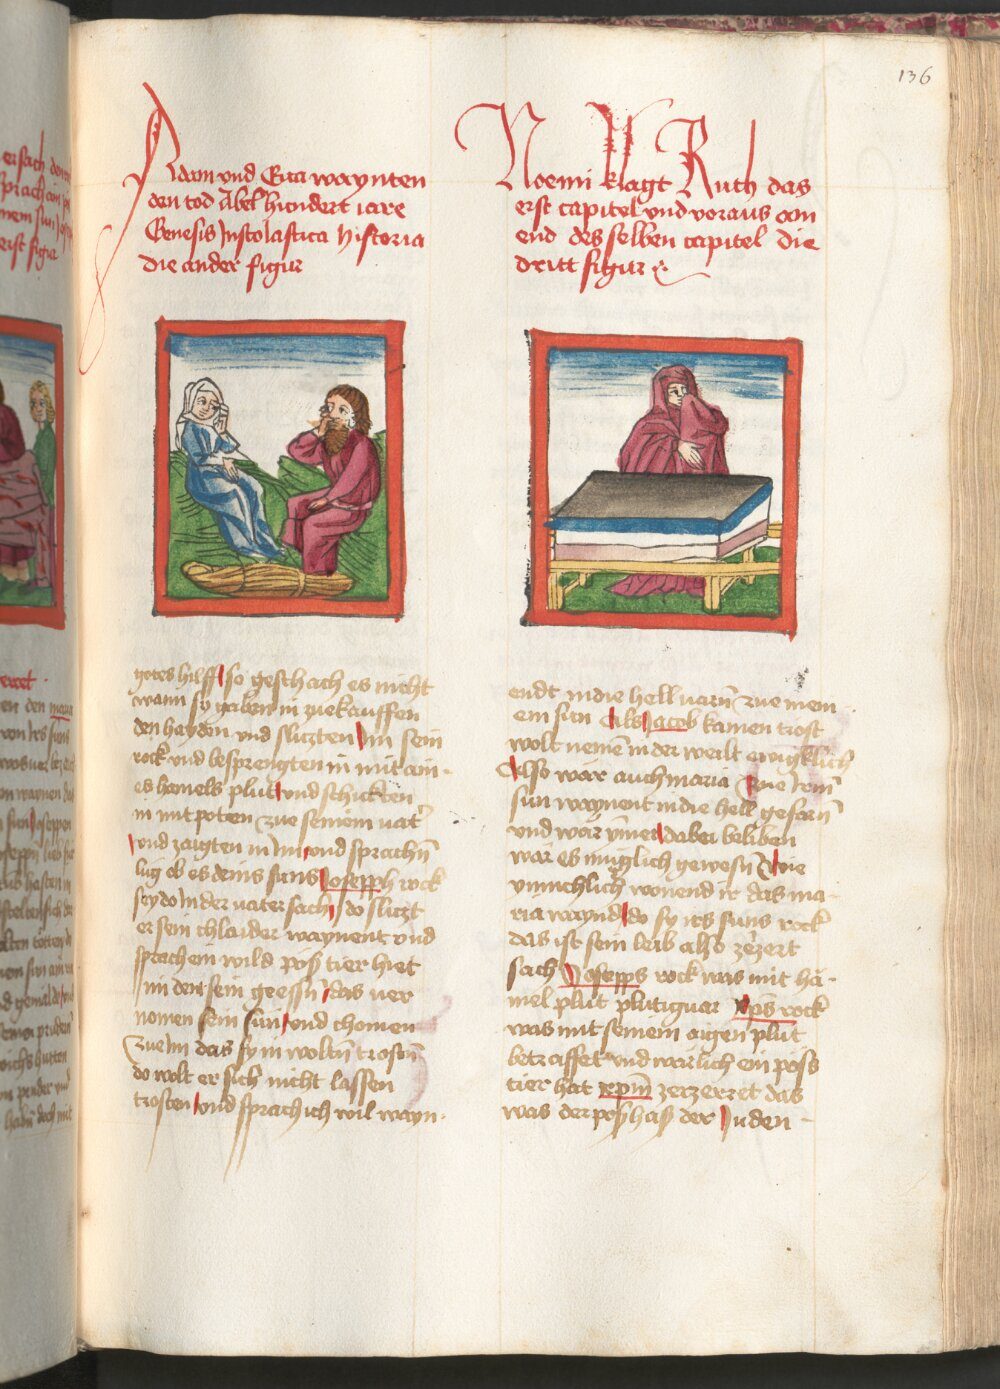 136
Adam und Eva waynten
den tod Abel hundert iare
Genesis Inscolastica historia
die ander figur
Noemi klagt Ruth das
erst capitel und voraus am
end des selben capitel die
dritt figur
gotes hilff so geschach es nicht
wann sy gaben in zuekauffen
den hayden und slizten Im sein
rock und besprengten in mit ain
es hamels plut und schickten
in mit poten zue seinem vatr
und zaigten in Im und sprachn
lug ob es deins suns Joseph rock
sey do In der vater sach do slizt
er sein chlaider waynent und
sprach ein wild pos tier hiet
Im den sein geessn das ver
nomen sein sun und chomen
zue Im das sy in woltn trostn
do wolt er sich nicht lassen
trosten und sprach ich wil wayn
endt in die hell varn zue mein
em sun Als Jacob kamen trost
wolt nemen in der welt ewigklich
Also wär auch maria zue irem
sun waynent in die hell gefarn
und war ymer dabei beliben
wär es muglich gewesn Wie
unmenschlich wonend ir das ma
ria waynd do sy irs suns rock
das ist sein leib also zezert
sach Josepps rock was mit hä
mel plut plutigvar xps rock
was mit seinem aigen plut
betraffet und warlich ein poss
tier hat xpm zerzerret das
was der poss hass der Juden